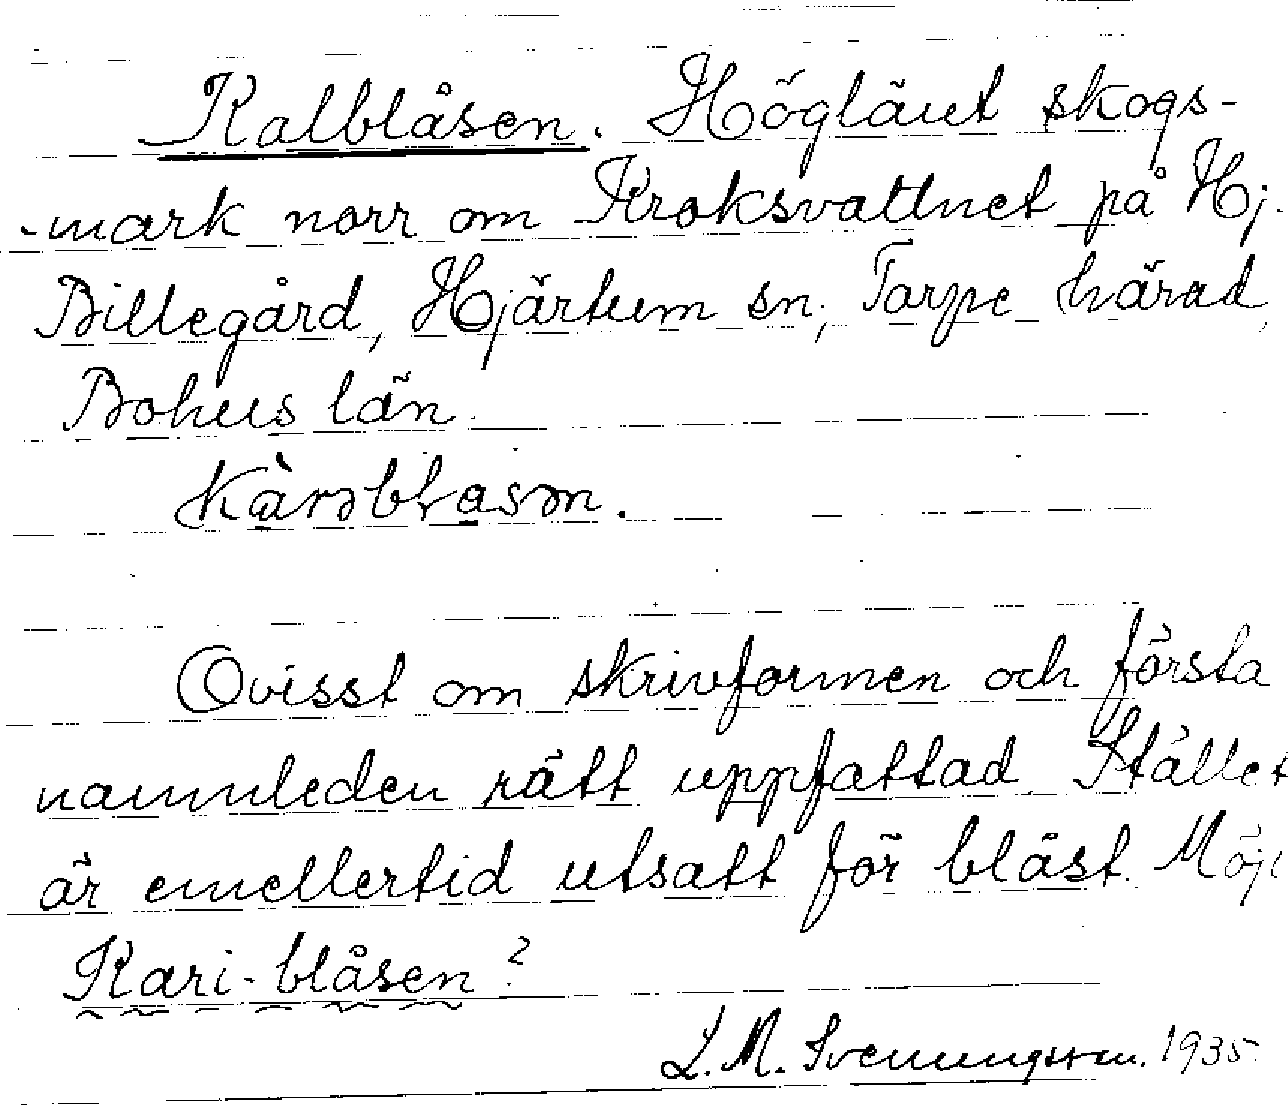 Kalblåsen. Högläut skogs-
-mark norr om Kroksvattnet på Hj.
Billegård, Hjärtum sn; Torpe härad,
Bohus län.
Kàrəblasən.
Ovisst om skrivformen och första
namnleden rätt uppfattad. Stället
är emellertid utsatt för blåst. Möji
Kari-blåsen?
L. M. Svenungsson. 1935.